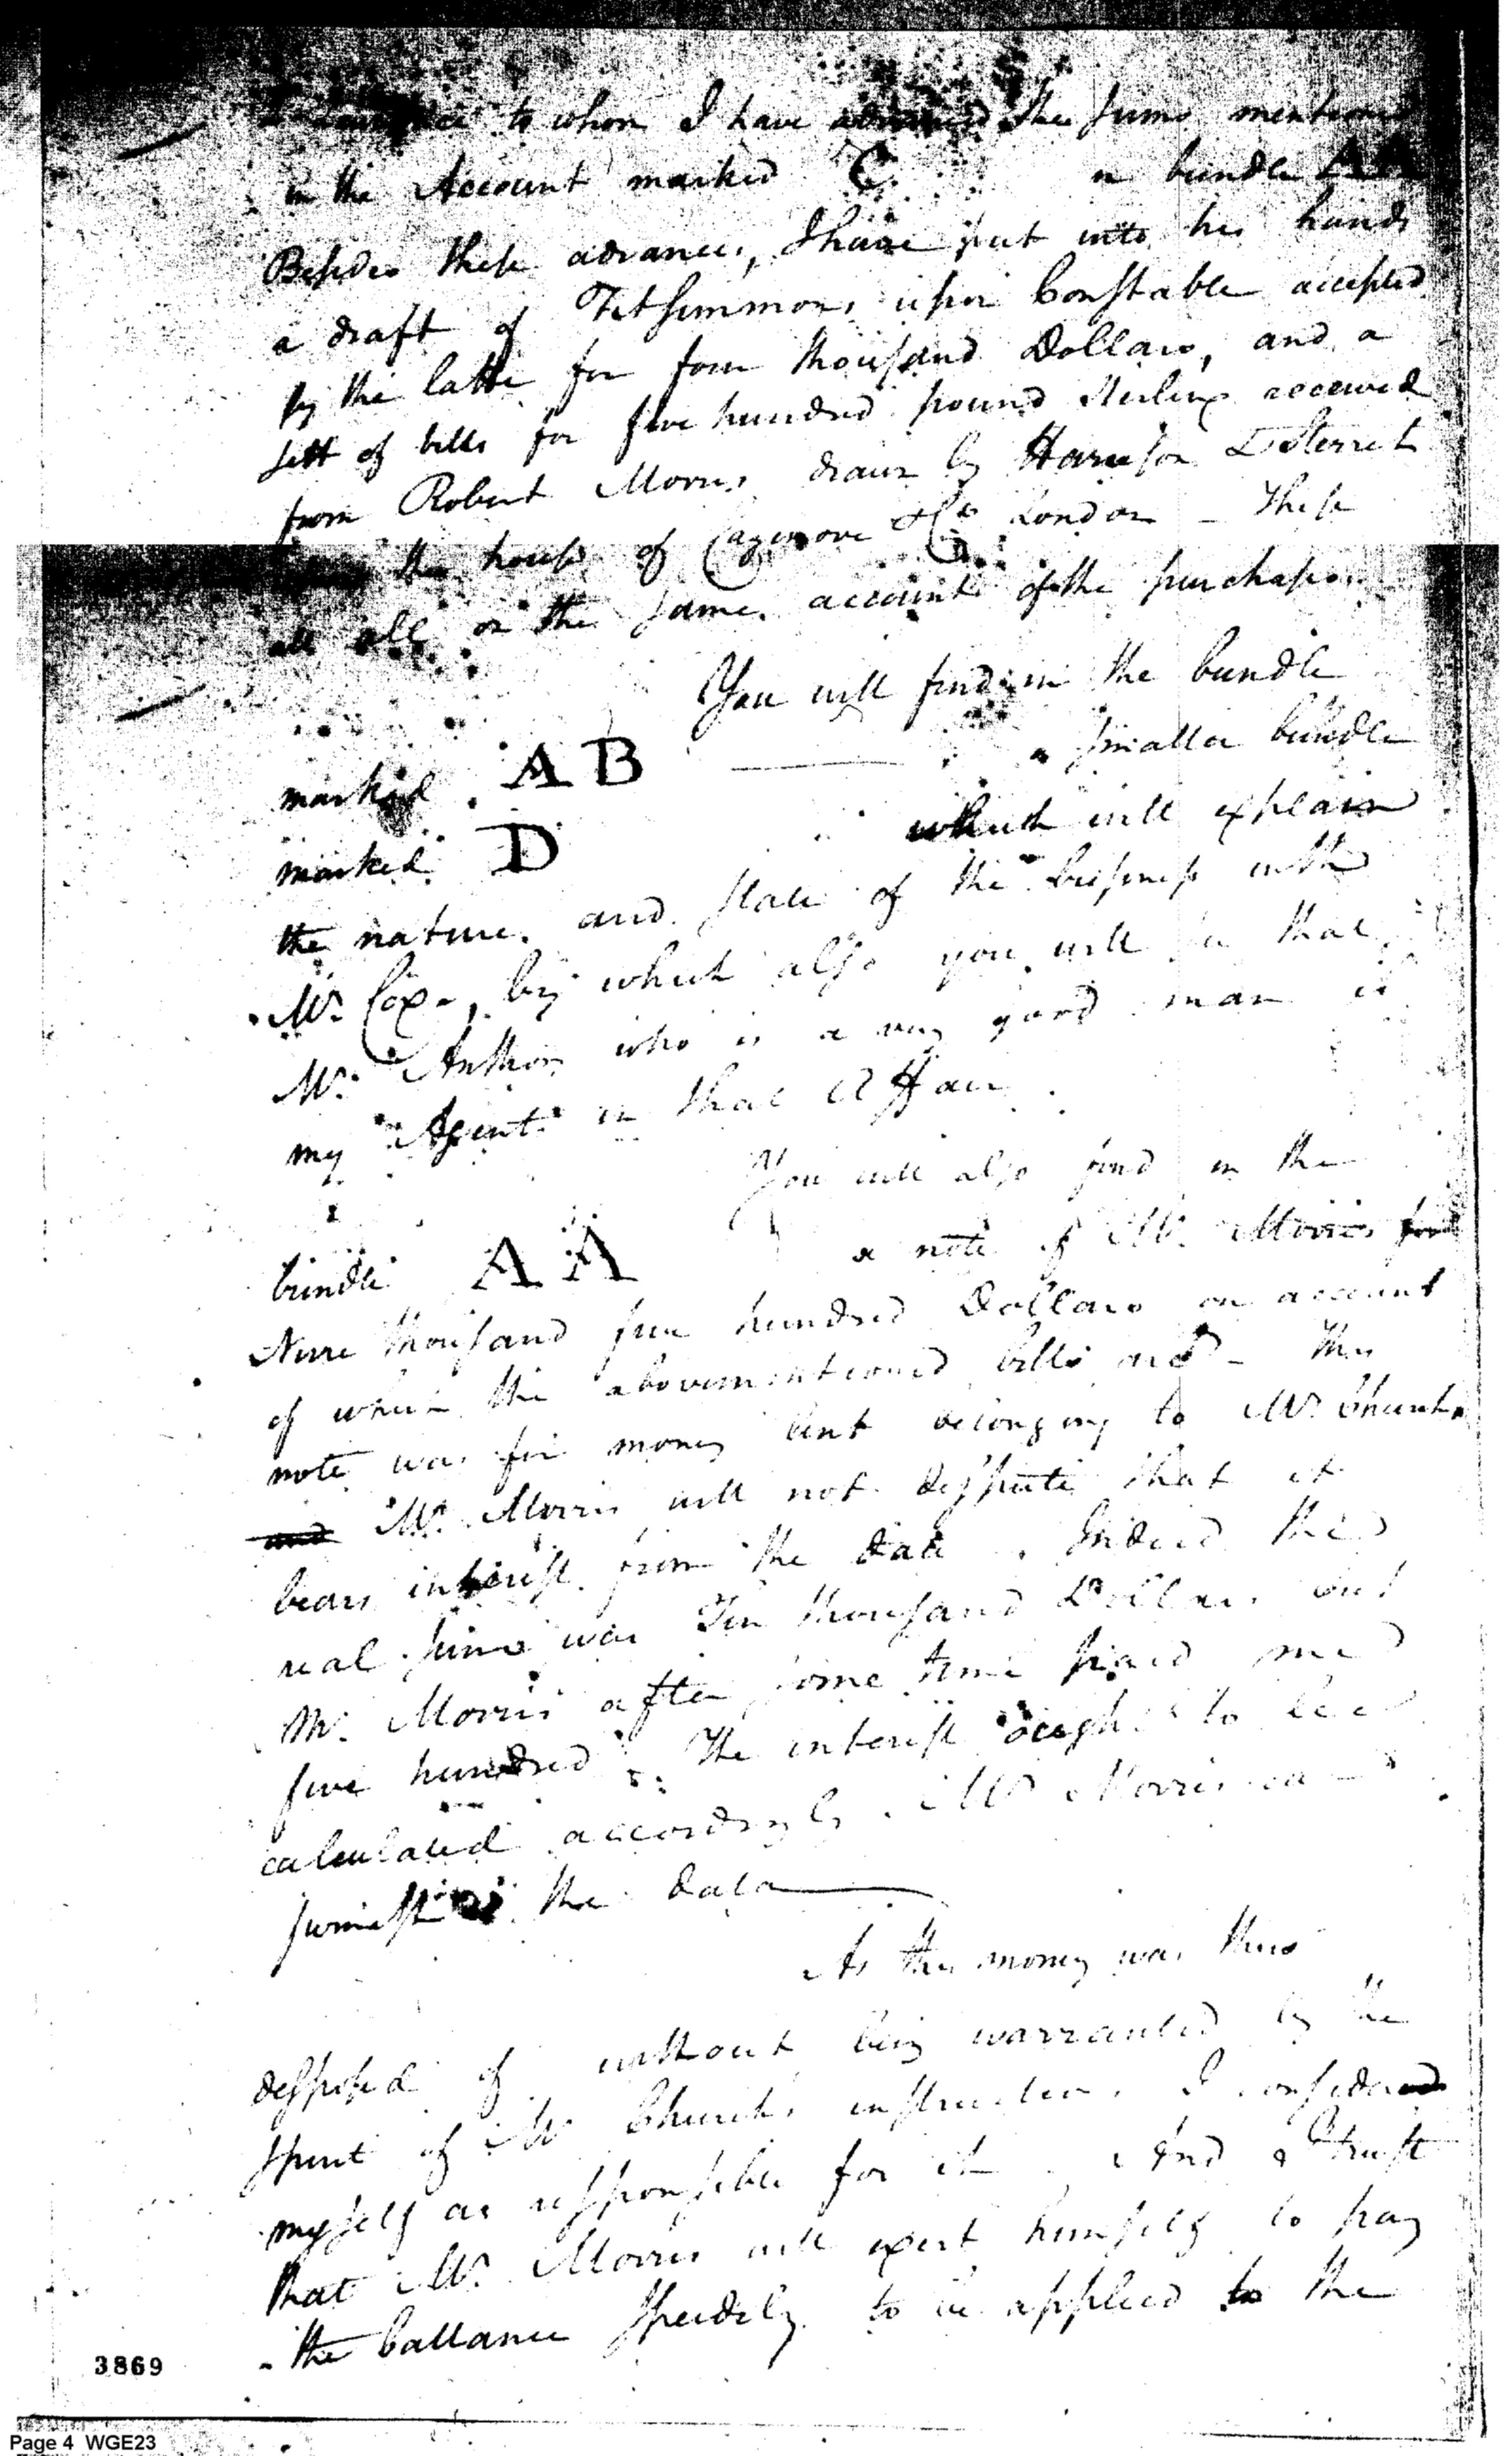 to whom I have advanced the sums mentioned
in the Account marked C in bundle AA
Besides these advances, I have put into his hands
a draft of Fitsimmons upon Constable accepted
by the latter for four thousand Dollars, and a
sett of bills for five hundred pound Sterling received
from Robert Morris drawn by Harrison & Sterret
the house of Cazenove & Co London — These
are all on the same account of the purchase
You will find in the bundle
marked AB a smaller bundle
marked D which will explain
the nature and state of the business with
Mr. Coxe, by which also you will see that
Mr. Anthony who is a very good man is
my Agent in that Affair.
You will also find in the
bundle AA a note of Mr. Morris for
Nine thousand five hundred Dollars on account
of which the abovementioned bills are — This
note was for money lent belonging to Mr. Church
and Mr. Morris will not dispute that it
bears interest from the date. Indeed the
real sum was Ten thousand Dollars but
Mr. Morris after some time paid me
five hundred. The interest ought to be
calculated accordingly. Mr. Morris can
furnish the data
As the money was thus
disposed of without being warranted by the
spirit of Mr Church's instruction, I considered
myself as responsible for it. And I trust
that Mr. Morris will exert himself to pay
the ballance speedily to be applied to the
3869
Page 4 WGE23